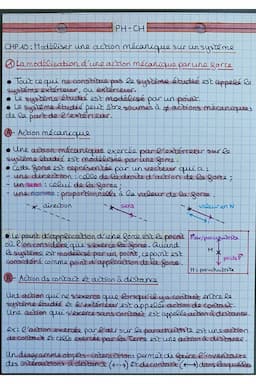 PH-CH
CHP.10 : Modéliser une action mécanique sur un système
① La modélisation d'une action mécanique par une force
• Tout ce qui ne constitue pas le système étudié est appelé le
système extérieur, ou extérieur.
• Le système étudié est modélisé par un point.
• Le système étudié peut être soumis à ≠ actions mécaniques
de la part de l'extérieur.
A- Action mécanique
• Une action mécanique exercée par l'extérieur sur le
système étudié est modélisée par une force.
• Cette force est représentée par un vecteur qui a :
- une direction : celle de la droite d'action de la force ;
- un sens : celui de la force ;
- une norme : proportionnelle à la valeur de la force.
direction sens valeur en N
• Le point d'application d'une force est le point
où l'on considère que s'exerce la force. Quand
le système est modélisé par un point, ce point est
considéré comme point d'application de la force.
M
poids P
M : parachutiste
B- Action de contact et action à distance
Une action qui ne s'exerce que lorsqu'il y a contact entre le
système étudié et l'extérieur est appelée action de contact.
Une action qui s'exerce sans contact est appelée action à distance.
Ex : l'action exercée par l'air sur le parachutiste est une action
de contact et celle exercée par la Terre est une action à distance.
Un diagramme objets-interactions permet de faire l'inventaire
des interactions à distance et de contact dans lesquelles